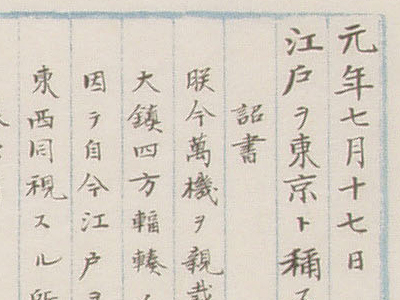 元年七月十七日
江戸ヲ東京ト稱ス
詔書
朕今萬機ヲ親裁
大鎮四方輻輳ノ
因テ自今江戸ヲ
東西同視スル所